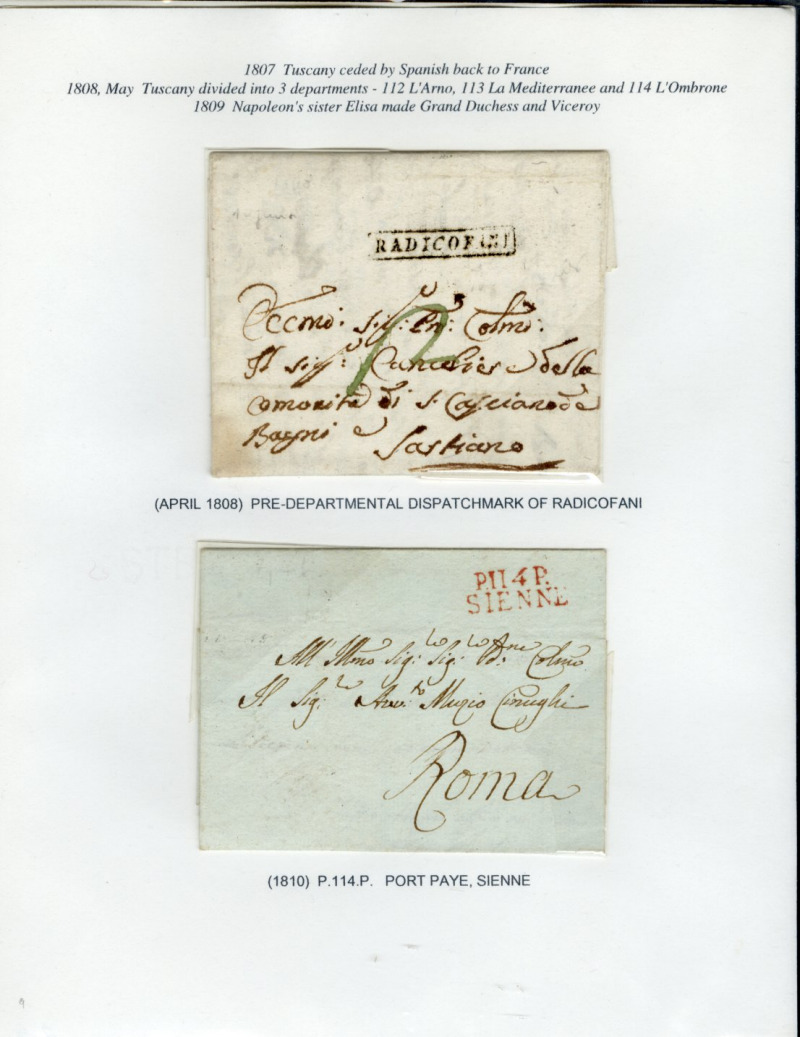 1807 Tuscany ceded by Spanish back to France
1808, May Tuscany divided into 3 departments - 112 L'Arno, 113 La Mediterranee and 114 L'Ombrone
1809 Napoleon's sister Elisa made Grand Duchess and Viceroy
RADICOFANI
Eccmo: Sig: Pn: Colmo:
Il Sig: Cancelier e della
Comonità di S. Casciano de
Bagni e Sartiano
(APRIL 1808) PRE-DEPARTMENTAL DISPATCHMARK OF RADICOFANI
P.114P.
SIENNE
All' Illmo Sig: Sig: Colmo
Il Sig: Avv: Muzio Cinughi
Roma
(1810) P.114.P. PORT PAYE, SIENNE